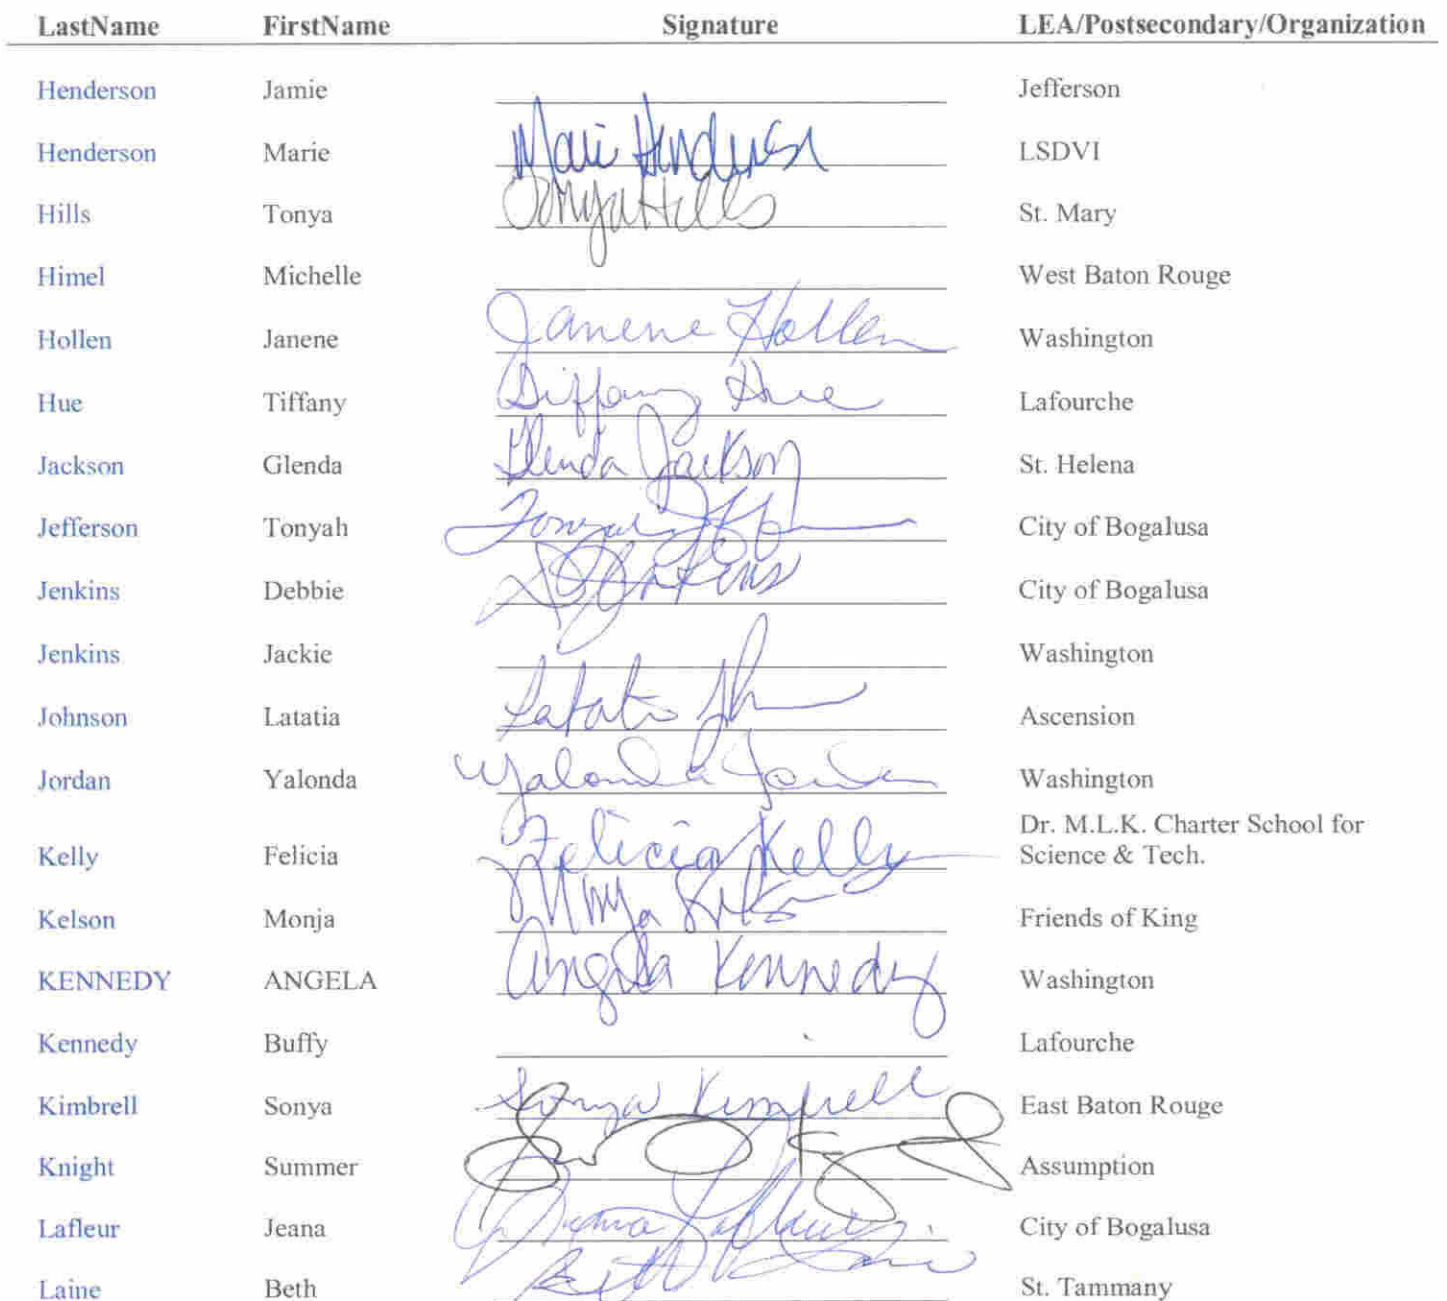 LastName FirstName Signature LEA/Postsecondary/Organization
Henderson Jamie Jefferson
Henderson Marie Marie Henderson LSDVI
Hills Tonya Tonya Hills St. Mary
Himel Michelle West Baton Rouge
Hollen Janene Janene Hollen Washington
Hue Tiffany Tiffany Hue Lafourche
Jackson Glenda Glenda Jackson St. Helena
Jefferson Tonyah City of Bogalusa
Jenkins Debbie D Jenkins City of Bogalusa
Jenkins Jackie Washington
Johnson Latatia Ascension
Jordan Yalonda Yalonda Jordan Washington
Dr. M.L.K. Charter School for
Kelly Felicia Felicia Kelly Science & Tech.
Kelson Monja Monja Friends of King
KENNEDY ANGELA Angela Kennedy Washington
Kennedy Buffy Lafourche
Kimbrell Sonya Sonya Kimbrell East Baton Rouge
Knight Summer Assumption
Lafleur Jeana Jeana Lafleur City of Bogalusa
Laine Beth Beth Laine St. Tammany